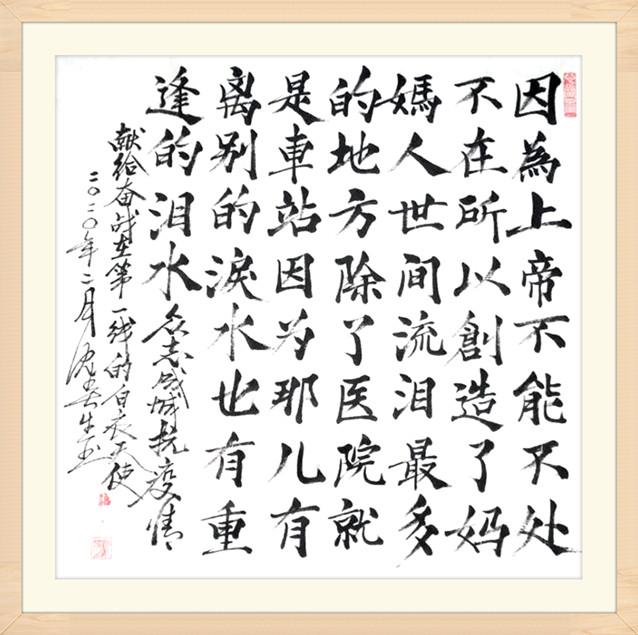 因為上帝不能不处
不在所以創造了妈
媽人世间流泪最多
的地方除了医院就
是車站因为那儿有
离别的淚水也有重
逢的泪水众志成城抗疫情
献给奋战在第一线的白衣天使
二〇二〇年二月